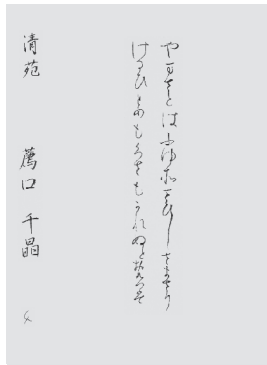 やまさとはふゆそさひしさまさり
けるひとめもくさもかれぬとおもへは
清苑 薦口 千晶